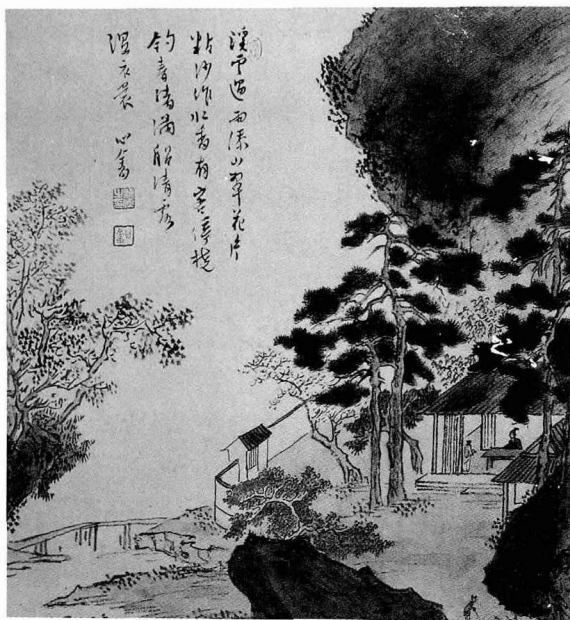 溪雲過雨添山翠花片
粘沙作水香有客停橈
釣春渚滿船清露
溼衣裳 心畬